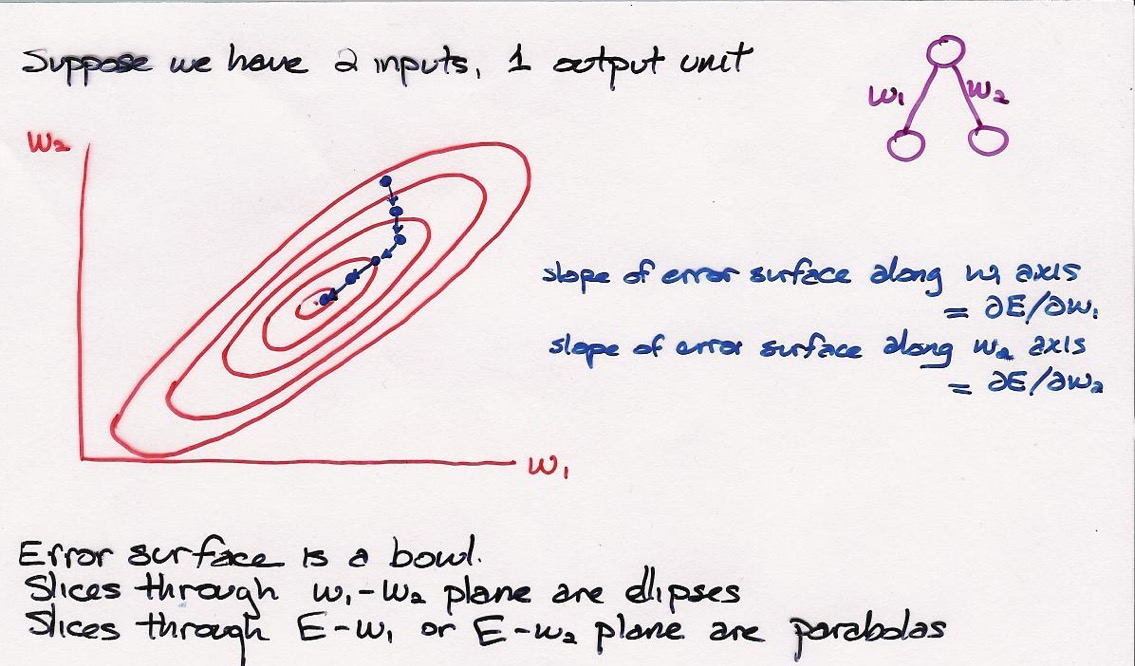 Suppose we have 2 inputs, 1 output unit
w₁ w₂
w₂
slope of error surface along w₁ axis
= ∂E/∂w₁
slope of error surface along w₂ axis
= ∂E/∂w₂
w₁
Error surface is a bowl.
Slices through w₁-w₂ plane are ellipses
Slices through E-w₁ or E-w₂ plane are parabolas